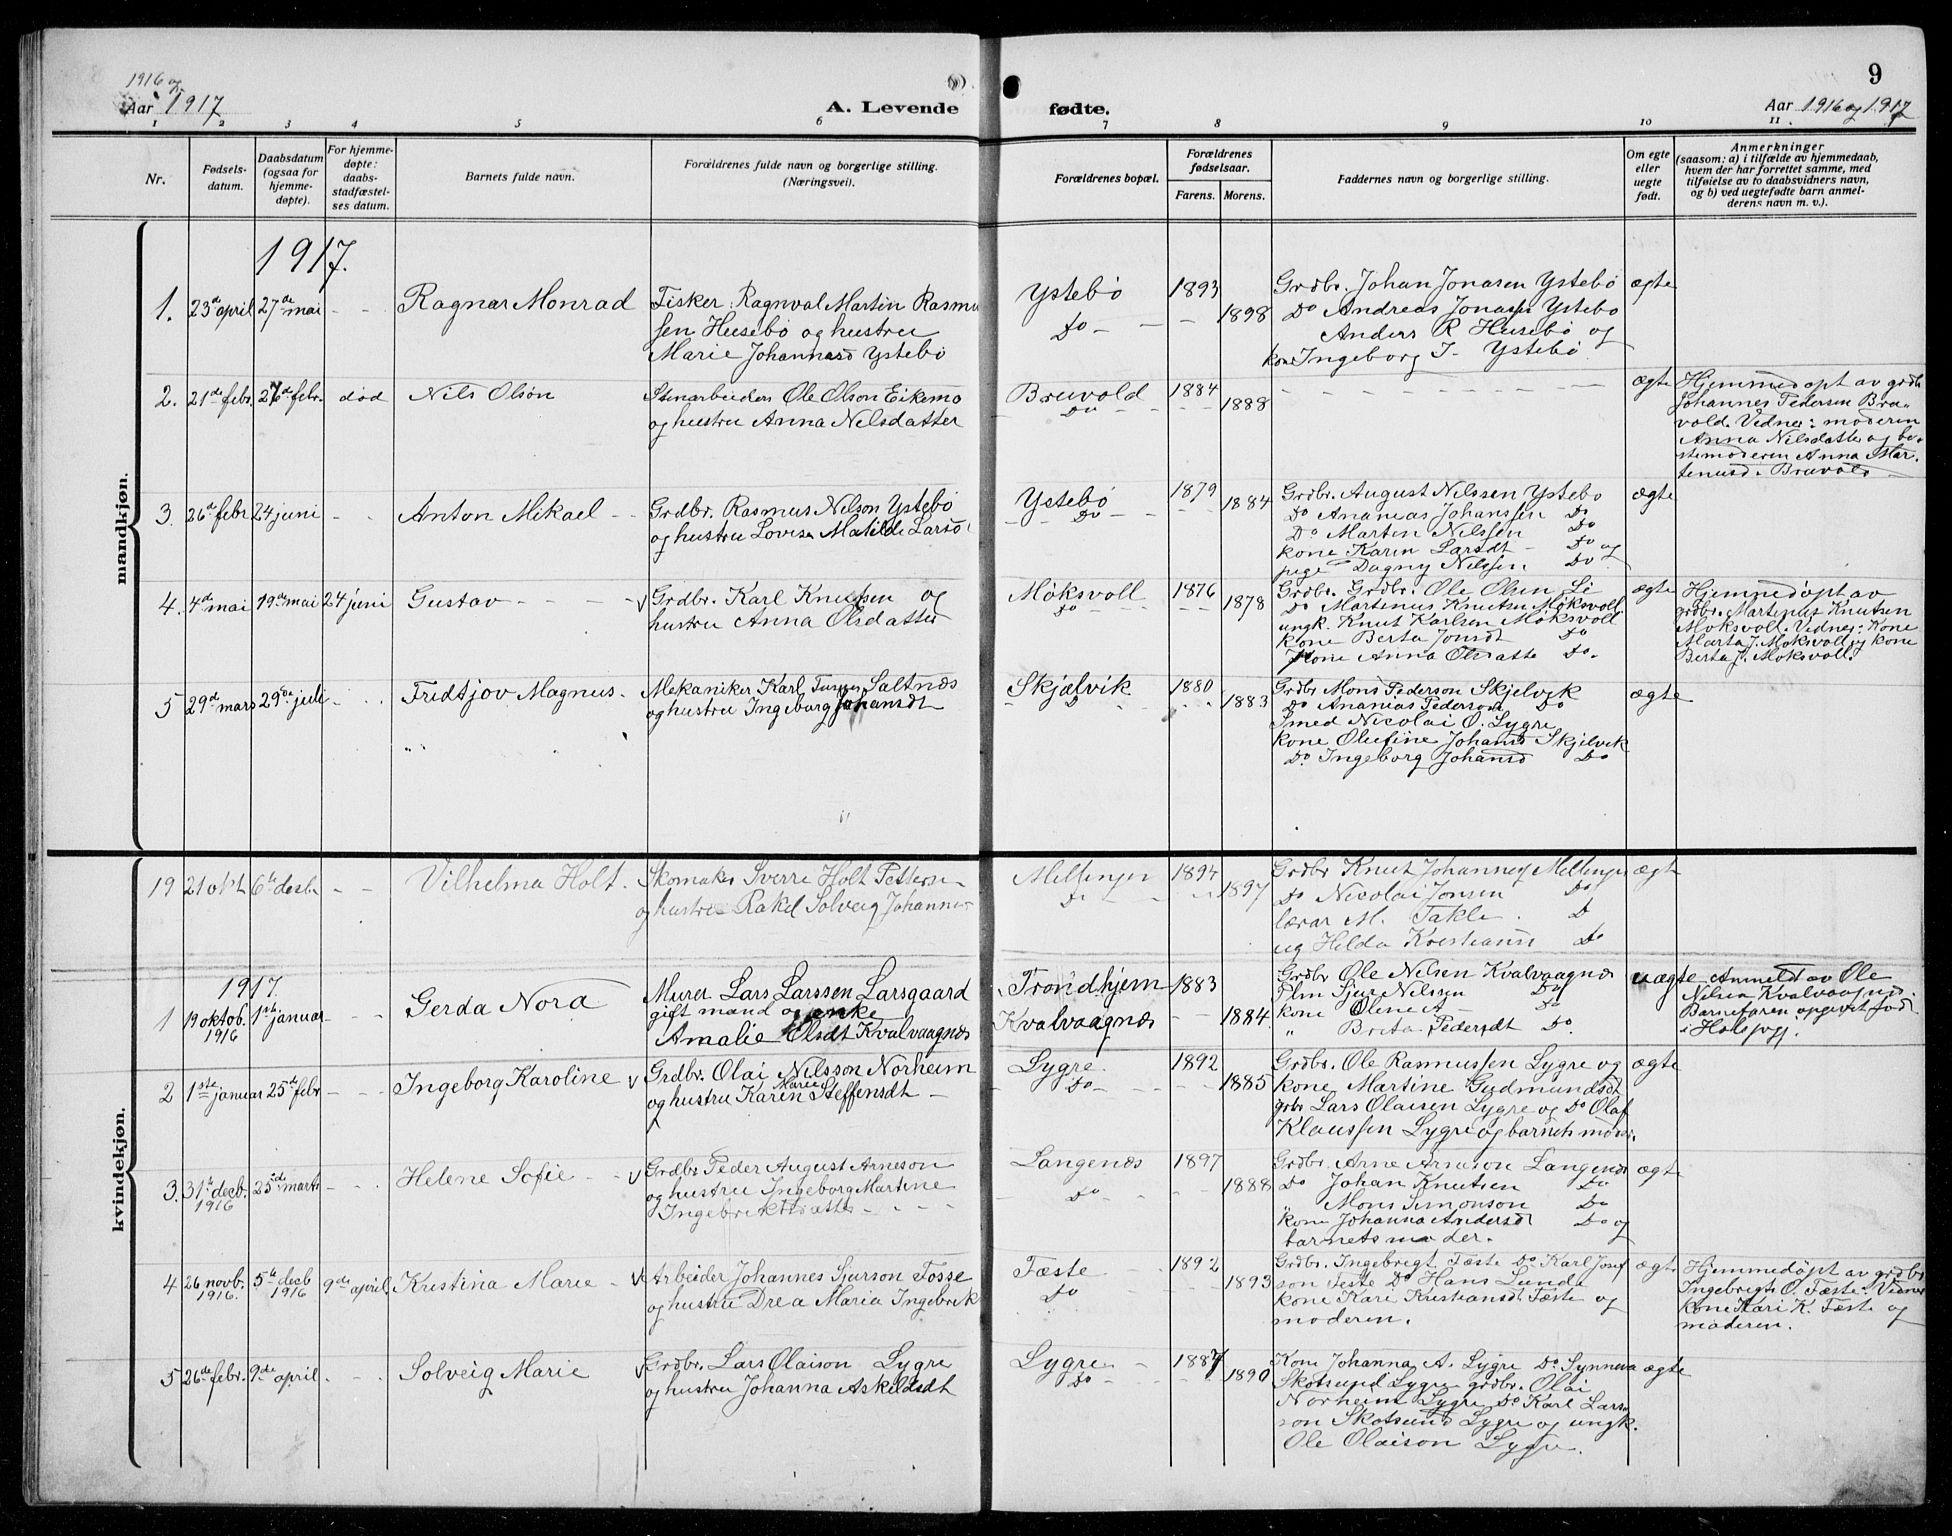 1916 og
Aar 1917
A. Levende
fødte.
9
Aar 1916 og 1917
1 2 3 4 5 6 7 8 9 10 11
Nr.
Fødsels-
datum.
Daabsdatum
(ogsaa for
hjemme-
døpte).
For hjemme-
døpte:
daabs-
stadfæstel-
ses datum.
Barnets fulde navn.
Forældrenes fulde navn og borgerlige stilling.
(Næringsvei).
Forældrenes bopæl.
Forældrenes
fødselsaar.
Farens. Morens.
Faddernes navn og borgerlige stilling.
Om egte
eller
uegte
født.
Anmerkninger
(saasom: a) i tilfælde av hjemmedaab,
hvem der har forrettet samme, med
tilføielse av to daabsvidners navn,
og b) ved uegtefødte barn anmel-
derens navn m. v.).
mandkjøn.
1917.
1. 23de april 27de mai - - Ragnar Monrad
Fisker Ragnval Martin Rasmu
sen Husebø og hustru
Marie Johannesd Ystebø
Ystebø
Do - -
1893
1898
Grdbr. Johan Jonasen Ystebø
Do Andreas Jonasen Ystebø
Anders R Husebø og
kone Ingeborg J- Ystebø
ægte
2. 21de febr. 26de febr. død Nils Olson
Stenarbeider Ole Olson Eikemo
og hustru Anna Nilsdatter
Bruvold
Do
1884
1888
ægte
Hjemmedøpt av grdb.
Johannes Pedersen Bru-
vold. Vidner: moderen
Anna Nilsdatter og be-
stemoderen Anna Mar-
tenusd. Bruvold
3. 26de febr 24 juni - - Anton Mikael
Grdbr. Rasmus Nilson Ystebø
og hustru Lovise Matilde Larsd
Ystebø
Do
1879
1884
Grdbr. August Nilssen Ystebø
Do Ananias Johanssen Do
Do Marten Nilssen Do
kone Karen Larsdt Do og
pige Dagny Nilssen Do.
ægte
4. 4de mai 19de mai 24 juni Gustav
Grdbr. Karl Knutsen og
hustru Anna Olsdatter
Møksvoll
Do
1876
1878
Grdbr. Grdbr. Ole Olsen Li
Do Martinus Knutsen Møksvoll
ungk. Knut Karlsen Møksvoll
kone Berta Jonsdt Do
Kone Anna Olsdatte Do.
ægte
Hjemmedøpt av
grdbr. Martinus Knutsen
Møksvoll. Vidner: Kone
Marta J. Møksvoll og kone
Berta J. Møksvoll.
5 29de mars 29de juli - Fridtjov Magnus
Mekaniker Karl Saltnæs
og hustru Ingeborg Johansdt
Skjælvik
Do
1880
1883
Grdbr Mons Pederson Skjelvik
Do Ananias Pederson Do
Smed Nicolai O. Lygre
kone Olufine Johansd Skjelvik
Do Ingeborg Johansd Do
ægte
kvindekjøn.
19 21 okt 6te desb - - Vilhelma Holt
Skomaker Sverre Holt Petterse
og hustru Rakel Solveig Johanne
Mellinger
Do
1894
1897
Grdbr Knut Johannes Mellinger
Do Nicolai Jonsen Do
lærar M. Takle Do
ug Hilda Do
ægt
1917.
1 19 oktob. 1916 1ste januar - - Gerda Nora
Murer Lars Larssen Larsgaard
gift mand og enke
Amalie Olsdt Kvalvaagnæs
Trondhjem
Kvalvaagnæs
1883
1884
Grdbr Ole Nelsen Kvalvaagnæs
Sjur Nelssen Do
kone Olene A- Do
" Brita Pedersdt Do.
uægte
Anmeldt av Ole
Nelsen Kvalvaagnæs.
Barnefaren opgivet født
i
2 1ste januar 25de febr - - Ingeborg Karoline
Grdbr. Olai Nilsson Norheim
og hustru Karen Marie Steffensdt
Lygre
Do
1892
1885
Grdbr. Ole Rasmussen Lygre og
kone Martine Gudmundsdt
grdbr Lars Olaisen Lygre og Do Olaf
Klaussen Lygre og barnets moder.
ægte
3. 31te decb. 1916 25de marts - - Helene Sofie
Grdbr Peder August Arneson
og hustru Ingeborg Martine
Ingebrektsdatter
Langenæs
Do
1897
1888
Grdbr. Arne Arneson Langenæs
Do Johan Knutsen Do
" Mons Simonson Do
kone Johanna Andersdt Do og
barnets moder.
ægte
4 26 novb. 1916. 5te decb 1916 9de april Kristina Marie
Arbeider Johannes Sjurson Fosse
og hustru Drea Maria Ingebrik
Fæste
Do
1892
1893
Grdbr. Ingebrigt Fæste Do Karl Josef
son Feste Do Hans Lunda
kone Kari Kristiansdt Fæste og
moderen.
ægte
Hjemmedøpt av grdbr
Ingebrigt O. Fæste. Vidner
kone Kari K. Fæste og
moderen.
5 26de febr. 9de april - - Solveig Marie
Grdbr. Lars Olaison Lygre
og hustru Johanna Askildsdt
Lygre
Do
1887
1890
Kone Johanna A. Lygre Do Synneva
Skotsund Lygre grdbr. Olai
Norheim Lygre Do Karl Lars-
son Skotsund Lygre og ungk.
Ole Olaison Lygre.
ægte